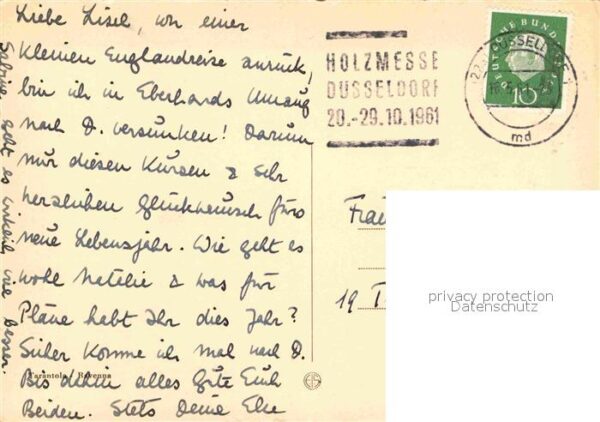 Liebe Lisel, von einer
kleinen Englandreise zurück,
bin ich in Eberhards Umzug
nach D. versunken! Darum
nur diesen kurzen & sehr
herzlichen Glückwunsch fürs
neue Lebensjahr. Wie geht es
wohl Natalie & was für
Pläne habt Ihr dies Jahr?
Sicher komme ich mal nach D.
Bis dahin alles gute Euch
Beiden. Stets Deine Else
geht es wirklich viel besser.
Tarantola Ravenna
HOLZMESSE
DÜSSELDORF
20.-29.10.1961
DEUTSCHE BUNDESPOST
10
DÜSSELDORF
md
Frau
19
privacy protection
Datenschutz